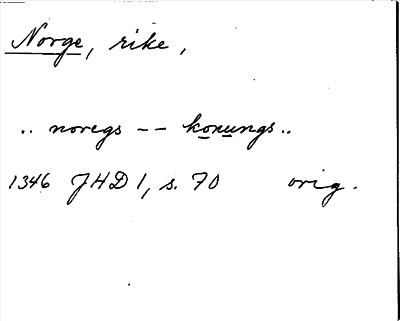 Norge, rike,
.. noregs -- konungs..
1346 JHD 1, s. 70 orig.